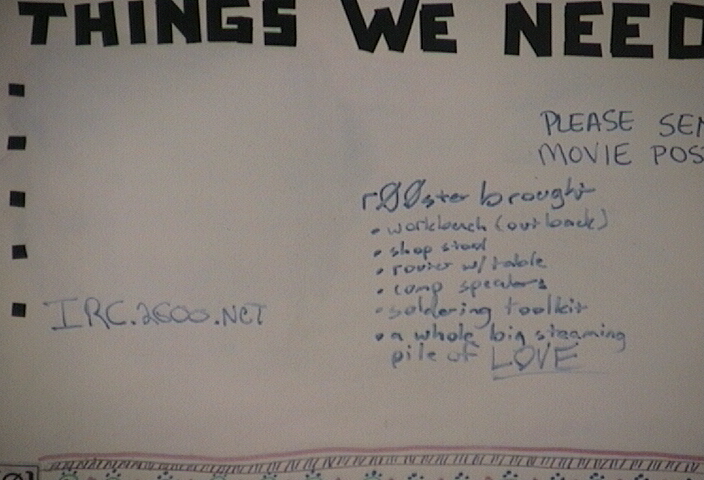 THINGS WE NEED
PLEASE SEN
MOVIE POS
rØØster brought
• workbench (out back)
• shop stool
• router w/ table
• comp speakers
• soldering toolkit
• a whole big steaming
pile of LOVE
IRC.2600.NET